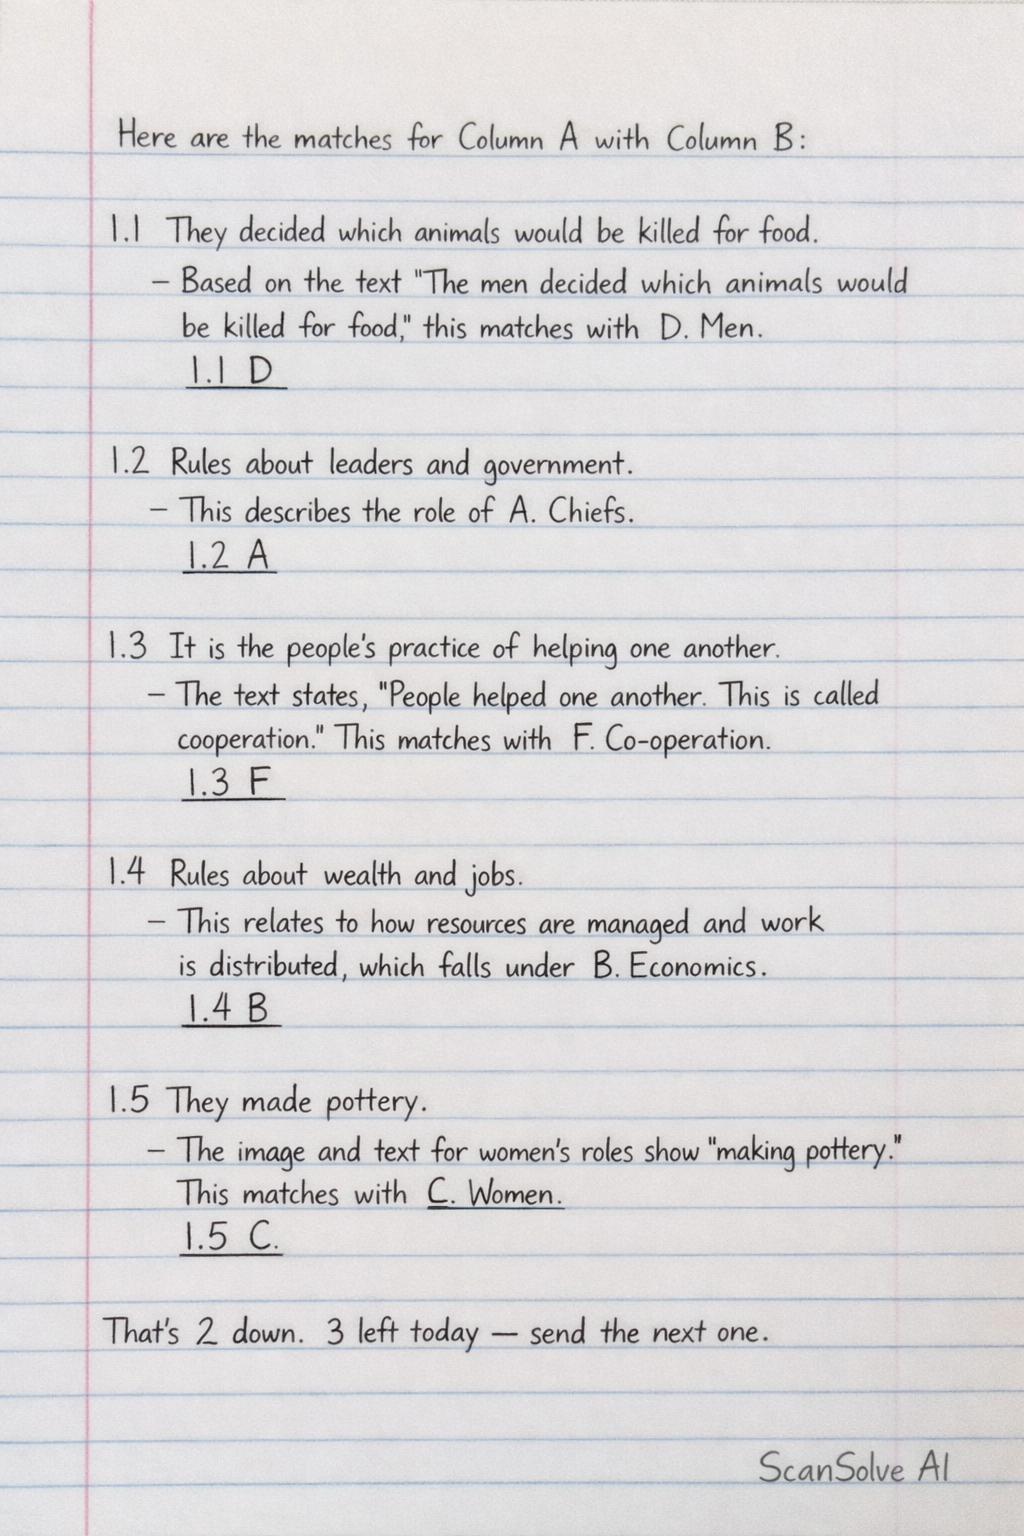 Here are the matches for Column A with Column B:
1.1 They decided which animals would be killed for food.
– Based on the text "The men decided which animals would
be killed for food," this matches with D. Men.
1.1 D
1.2 Rules about leaders and government.
– This describes the role of A. Chiefs.
1.2 A
1.3 It is the people's practice of helping one another.
– The text states, "People helped one another. This is called
cooperation." This matches with F. Co-operation.
1.3 F
1.4 Rules about wealth and jobs.
– This relates to how resources are managed and work
is distributed, which falls under B. Economics.
1.4 B
1.5 They made pottery.
– The image and text for women's roles show "making pottery."
This matches with C. Women.
1.5 C.
That's 2 down. 3 left today — send the next one.
ScanSolve AI